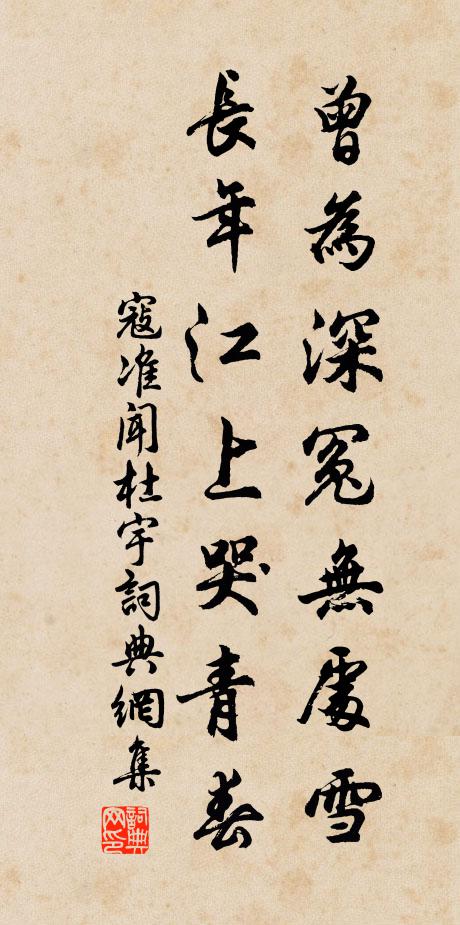 曾為深冤無處雪
長年江上哭青春
寇准聞杜宇詞典網集
詞典網印